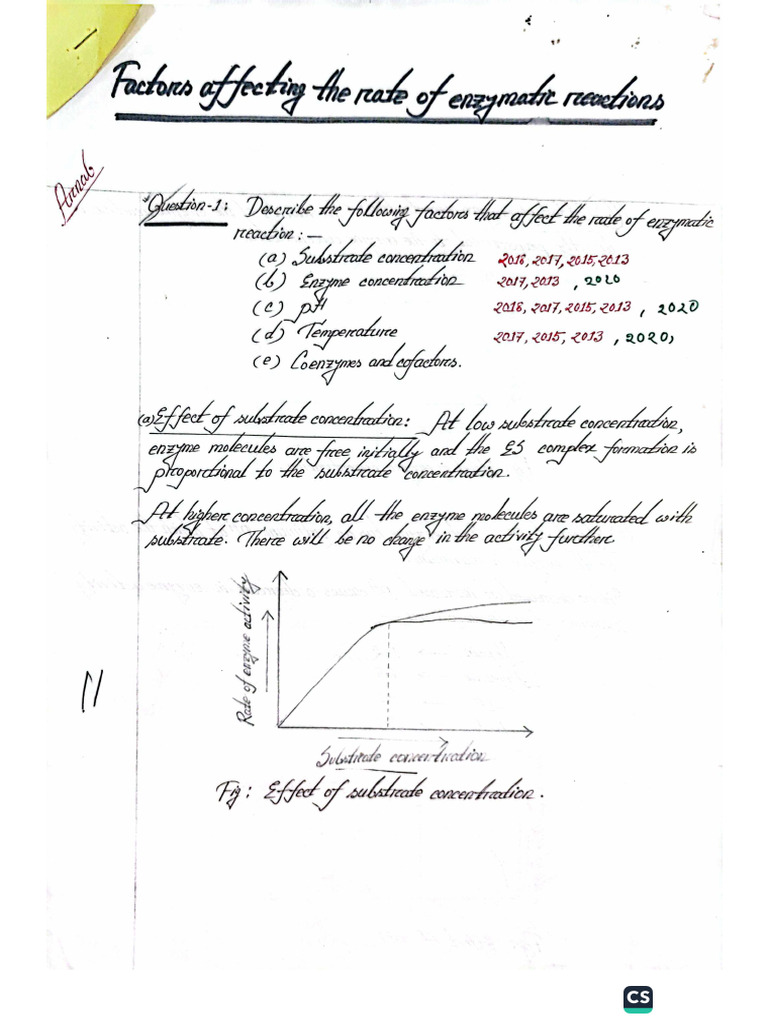 Factors affecting the rate of enzymatic reactions
Arnab
Question-1: Describe the following factors that affect the rate of enzymatic
reaction:—
(a) Substrate concentration 2018, 2017, 2015, 2013
(b) Enzyme concentration 2017, 2013, 2020
(c) pH 2018, 2017, 2015, 2013, 2020
(d) Temperature 2017, 2015, 2013, 2020,
(e) Coenzymes and cofactors.
(a) Effect of substrate concentration: At low substrate concentration,
enzyme molecules are free initially and the ES complex formation is
proportional to the substrate concentration.
At higher concentration, all the enzyme molecules are saturated with
substrate. There will be no change in the activity further
Rate of enzyme activity
Substrate concentration
Fig: Effect of substrate concentration.
CS